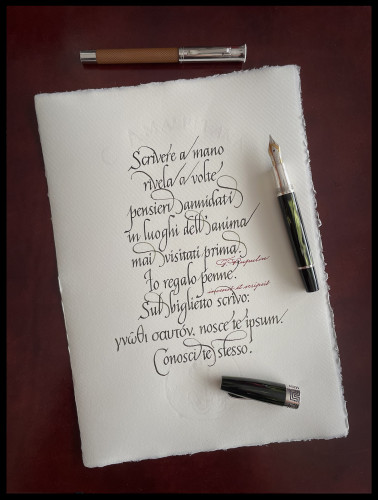 Scrivere a mano
rivela a volte
pensieri annidati
in luoghi dell'anima
mai visitati prima.
Io regalo penne.
Sul biglietto scrivo:
γνῶθι σαυτόν, nosce te ipsum.
Conosci te stesso.